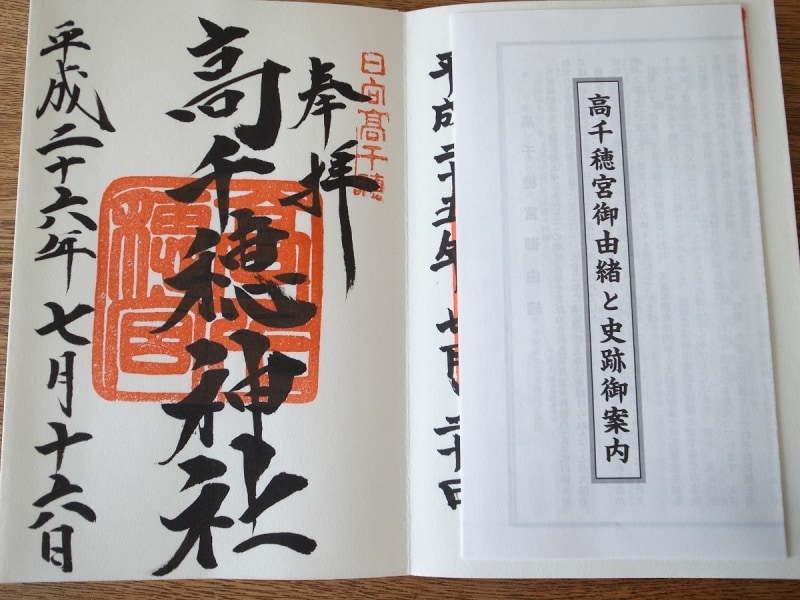 高千穂宮御由緒と史跡御案内
平成二十五年七月二十日
日向高千穂
奉拝
高千穂神社
高千穂宮
平成二十六年七月十六日